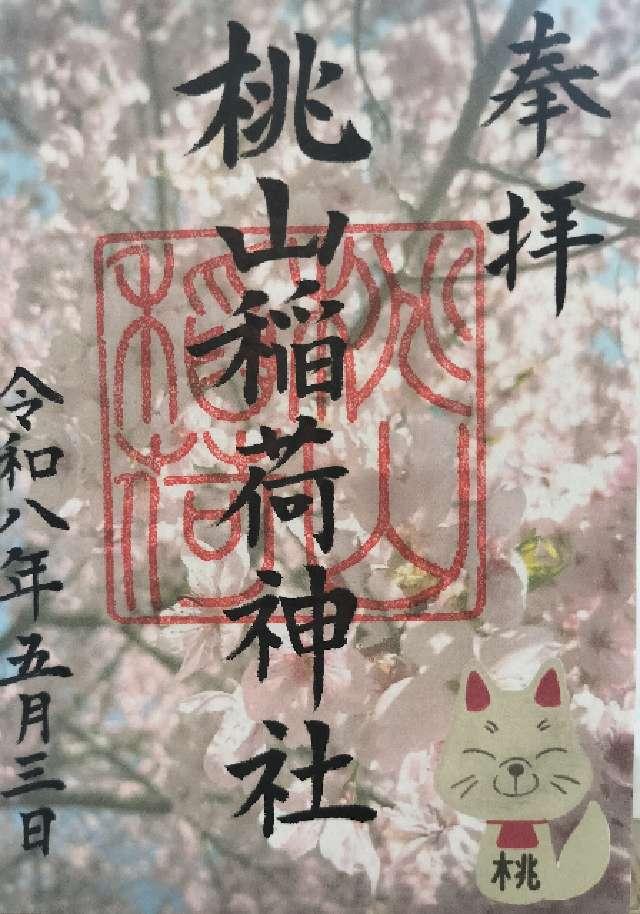 奉拝
桃山稲荷神社
令和八年五月三日
桃山
稲荷
桃